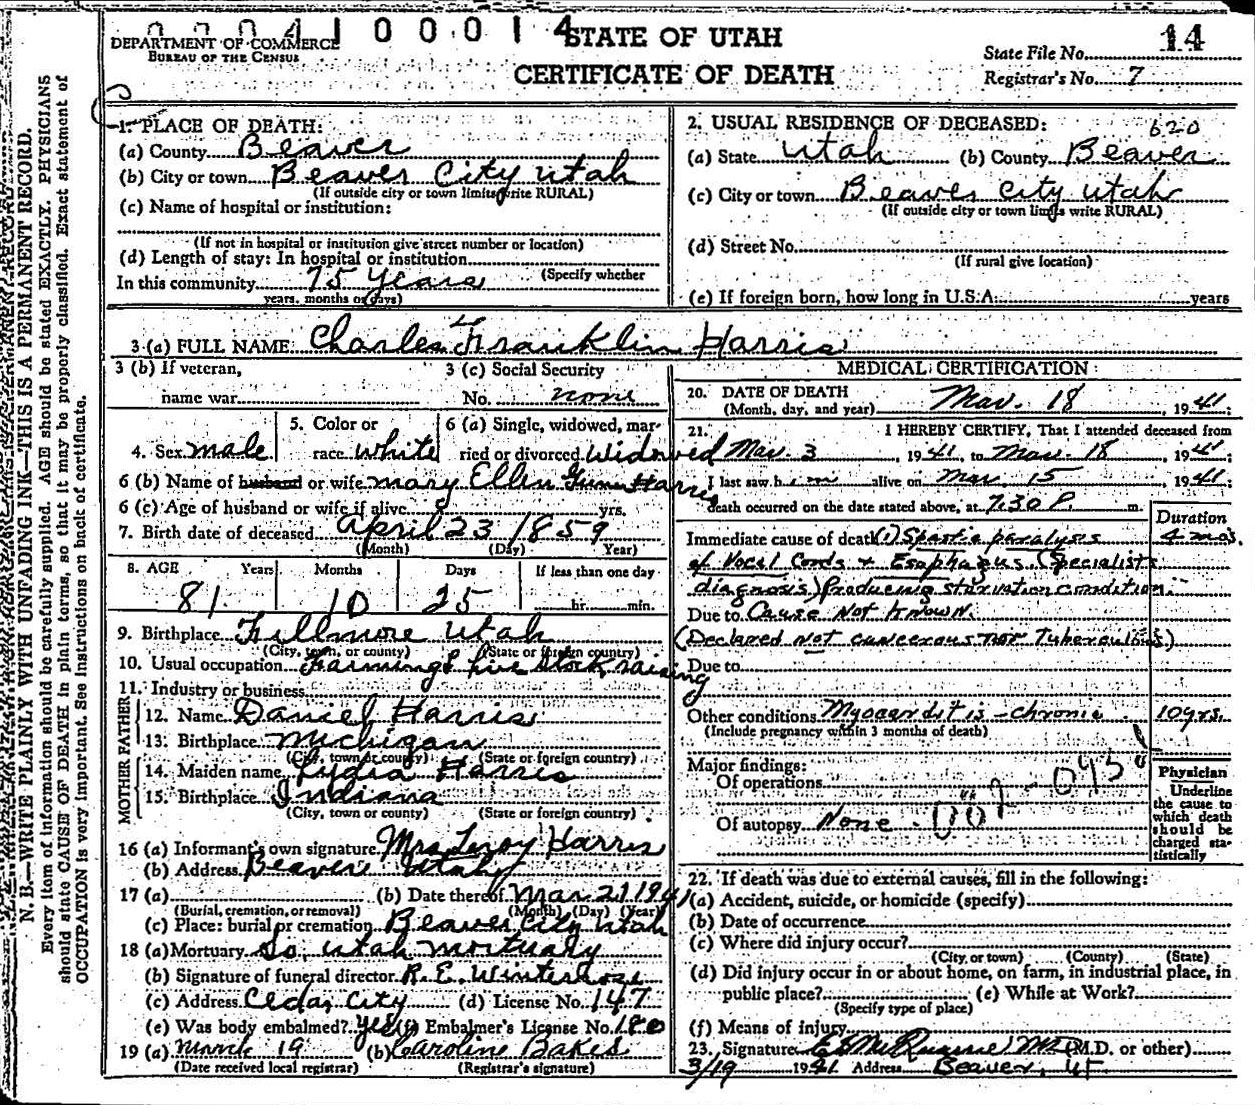 0004100014
STATE OF UTAH
DEPARTMENT OF COMMERCE
BUREAU OF THE CENSUS
CERTIFICATE OF DEATH
State File No. 14
Registrar's No. 7
N. B.—WRITE PLAINLY WITH UNFADING INK—THIS IS A PERMANENT RECORD.
Every item of information should be carefully supplied. AGE should be stated EXACTLY. PHYSICIANS
should state CAUSE OF DEATH in plain terms, so that it may be properly classified. Exact statement of
OCCUPATION is very important. See instructions on back of certificate.
1. PLACE OF DEATH:
(a) County Beaver
(b) City or town Beaver City Utah
(If outside city or town limits write RURAL)
(c) Name of hospital or institution:
(If not in hospital or institution give street number or location)
(d) Length of stay: In hospital or institution
(Specify whether
In this community 75 years
years, months or days)
2. USUAL RESIDENCE OF DECEASED: 620
(a) State Utah (b) County Beaver
(c) City or town Beaver City Utah
(If outside city or town limits write RURAL)
(d) Street No.
(If rural give location)
(e) If foreign born, how long in U.S.A. years
3 (a) FULL NAME Charles Franklin Harris
3 (b) If veteran,
name war
3 (c) Social Security
No. none
4. Sex male
5. Color or
race white
6 (a) Single, widowed, mar-
ried or divorced Widowed
6 (b) Name of husband or wife Mary Ellen Gunn Harris
6 (c) Age of husband or wife if alive yrs.
7. Birth date of deceased April 23 1859
(Month) (Day) Year)
8. AGE Years Months Days If less than one day
81 10 25 hr. min.
9. Birthplace Fillmore Utah
(City, town, or county) (State or foreign country)
10. Usual occupation Farming & live stock raising
11. Industry or business
FATHER
12. Name Daniel Harris
13. Birthplace Michigan
(City, town or county) (State or foreign country)
MOTHER
14. Maiden name Lydia Harris
15. Birthplace Indiana
(City, town or county) (State or foreign country)
16 (a) Informant's own signature Mrs Leroy Harris
(b) Address Beaver Utah
17 (a) (b) Date thereof Mar 21 1941
(Burial, cremation, or removal) (Month) (Day) (Year)
(c) Place: burial or cremation Beaver City Utah
18 (a) Mortuary So. Utah Mortuary
(b) Signature of funeral director R. E. Winterrose
(c) Address Cedar City (d) License No. 147
(e) Was body embalmed? yes (f) Embalmer's License No. 180
19 (a) March 19 (b) Caroline Bakes
(Date received local registrar) (Registrar's signature)
MEDICAL CERTIFICATION
20. DATE OF DEATH
(Month, day, and year) Mar. 18, 1941;
21. I HEREBY CERTIFY, That I attended deceased from
Mar. 3, 1941, to Mar. 18, 1941;
I last saw him alive on Mar. 15, 1941;
death occurred on the date stated above, at 7:30 P. m.
Duration
Immediate cause of death (1) Spastic paralysis 4 mos.
of Vocal Cords & Esophagus. (Specialists
diagnosis) Producing starvation condition.
Due to Cause Not Known.
(Declared not cancerous nor tuberculous)
Due to
Other conditions Myocarditis - chronic 10 yrs.
(Include pregnancy within 3 months of death)
Major findings:
Of operations
Of autopsy None
Physician
Underline
the cause to
which death
should be
charged sta-
tistically
22. If death was due to external causes, fill in the following:
(a) Accident, suicide, or homicide (specify)
(b) Date of occurrence
(c) Where did injury occur?
(City, or town) (County) (State)
(d) Did injury occur in or about home, on farm, in industrial place, in
public place? (e) While at Work?
(Specify type of place)
(f) Means of injury
23. Signature M.D. (M.D. or other)
3/19 1941 Address Beaver, Ut